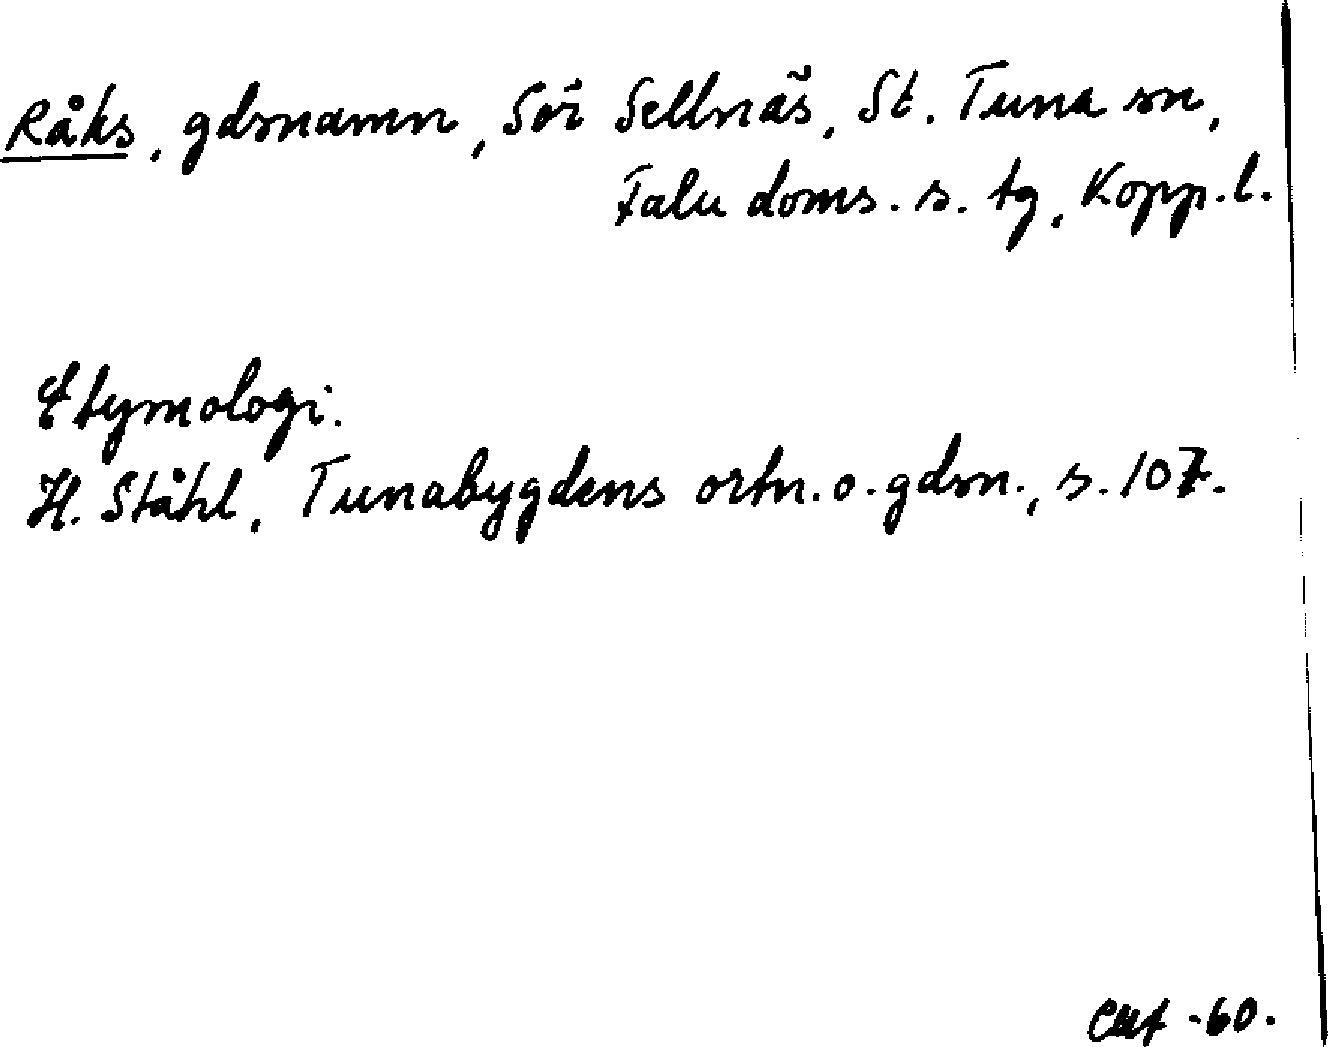 Råks, gdsnamn, Sör Sellnäs, St. Tuna sn,
Falu doms. s. tg, Kopp. l.
Etymologi.
H. Ståhl, Tunabygdens ortn. o. gdsn., s. 107.
-60.